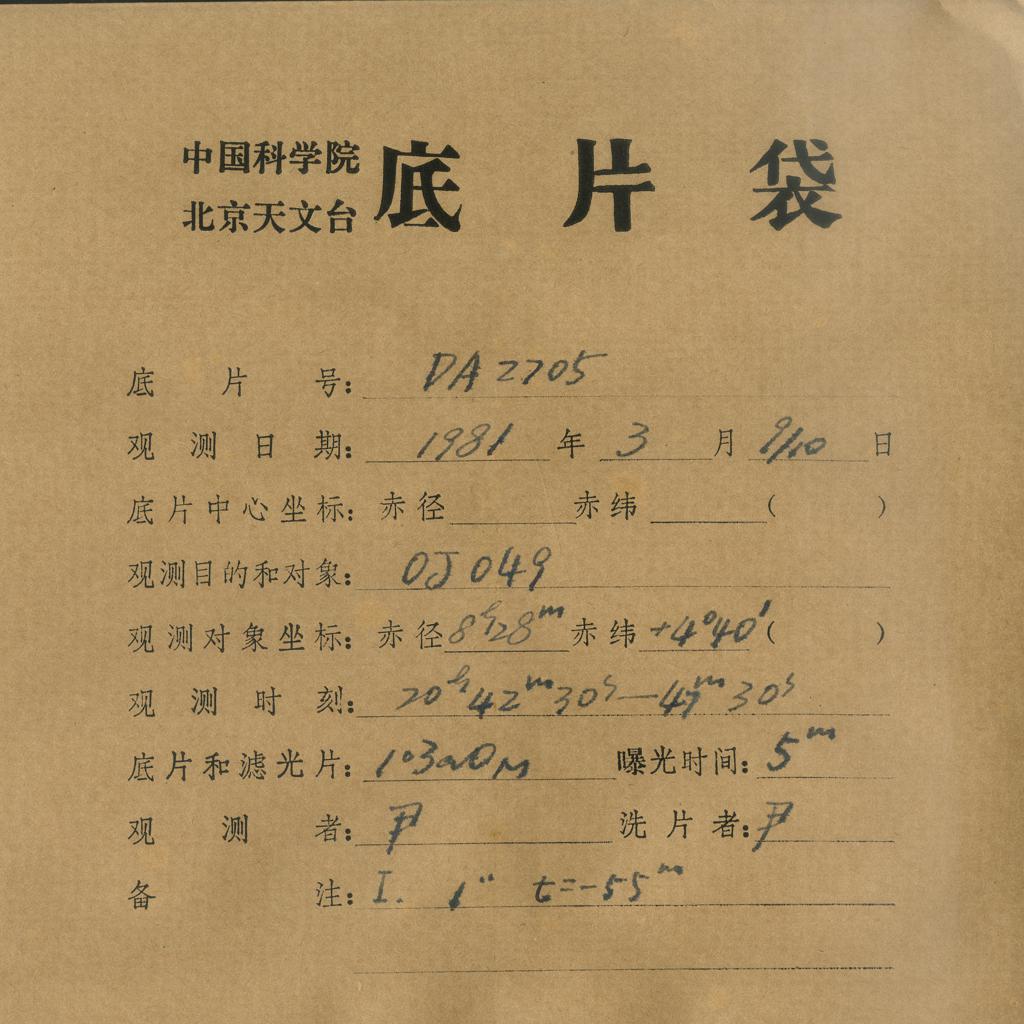 中国科学院
北京天文台 底片袋
底片号: DA2705
观测日期: 1981年3月9/10日
底片中心坐标: 赤径 赤纬 ( )
观测目的和对象: OJ 049
观测对象坐标: 赤径 8h28m 赤纬 +4°40′ ( )
观测时刻: 20h42m30s—47m30s
底片和滤光片: 103aO 曝光时间: 5m
观测者: 尹 洗片者: 尹
备注: I. 1″ t=-55m